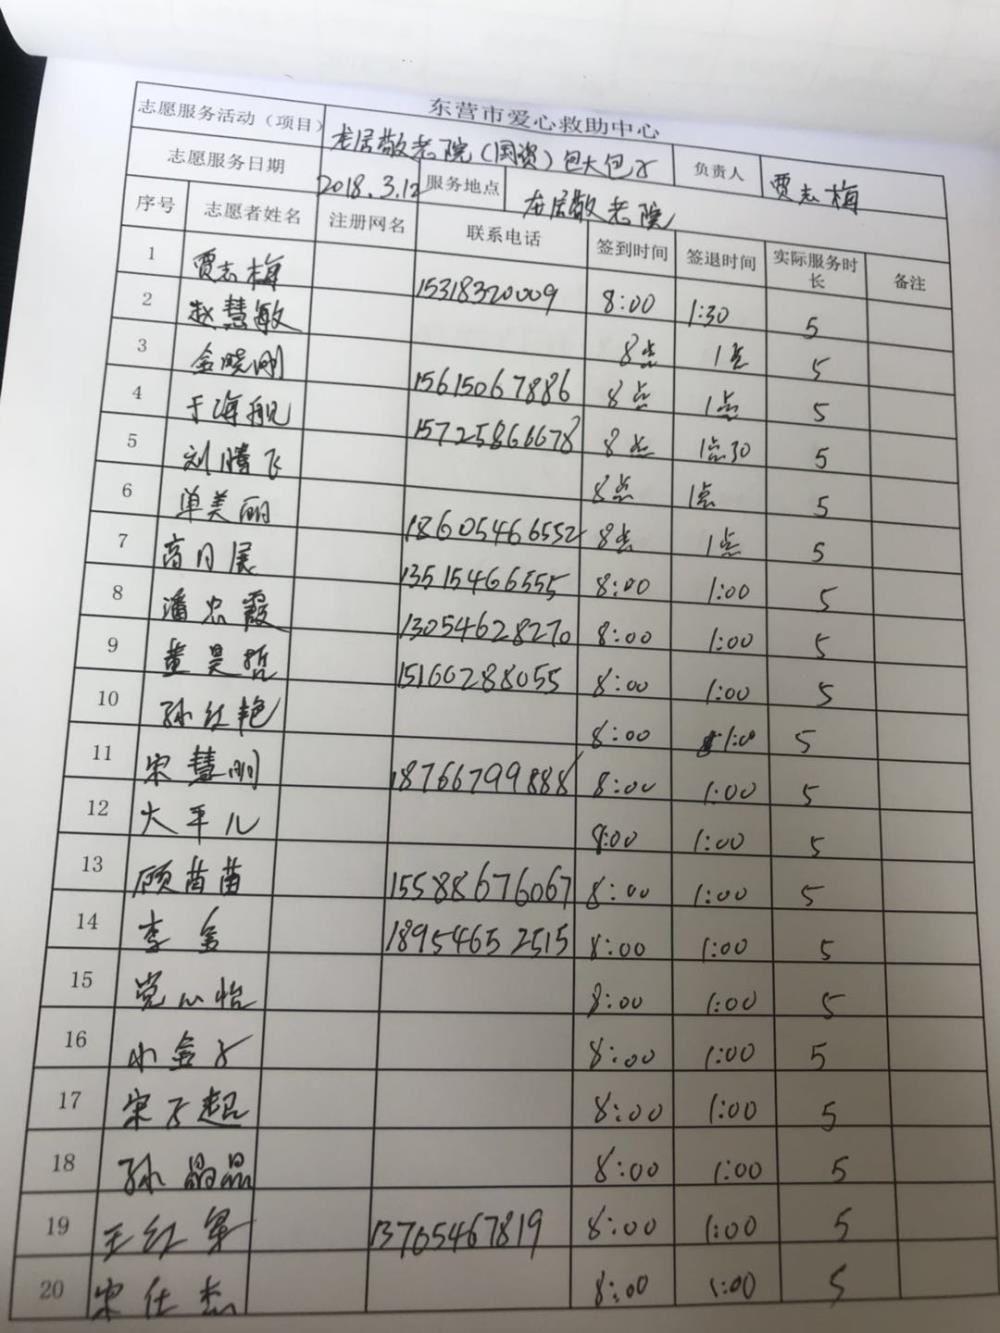 东营市爱心救助中心
志愿服务活动（项目） 龙居敬老院（国资）包大包子 负责人 贾志梅
志愿服务日期 2018.3.12 服务地点 龙居敬老院
序号 志愿者姓名 注册网名 联系电话 签到时间 签退时间 实际服务时长 备注
1 贾志梅 15318320009 8:00 1:30 5
2 赵慧敏 8点 1点 5
3 金晓刚 15615067886 8点 1点 5
4 于海舰 15725866678 8点 1点30 5
5 刘腾飞 8点 1点 5
6 单美丽 18605466552 8点 1点 5
7 商月展 13515466555 8:00 1:00 5
8 潘忠霞 13054628270 8:00 1:00 5
9 黄昊哲 15166288055 8:00 1:00 5
10 孙红艳 8:00 1:0 5
11 宋慧明 18766799888 8:00 1:00 5
12 大平儿 8:00 1:00 5
13 顾苗苗 15588676067 8:00 1:00 5
14 李金 18954652515 8:00 1:00 5
15 党心怡 8:00 1:00 5
16 小金子 8:00 1:00 5
17 宋子超 8:00 1:00 5
18 孙晶晶 8:00 1:00 5
19 王红军 13765467819 8:00 1:00 5
20 宋仕杰 8:00 1:00 5